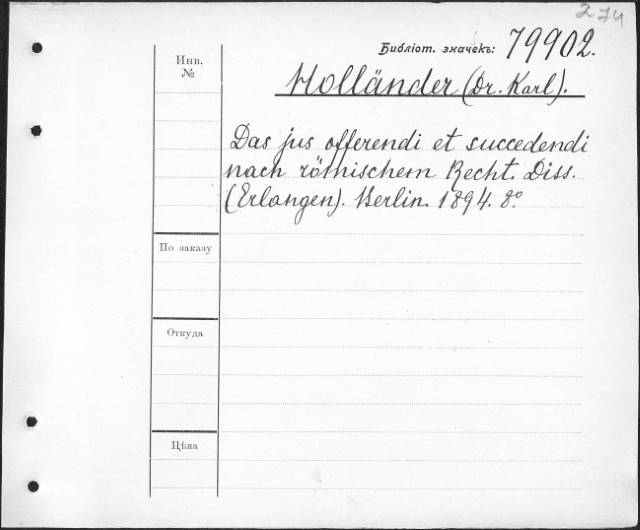 274
Библіот. значекъ: 79902.
Инв. №
Holländer (Dr. Karl).
Das jus offerendi et succedendi
nach römischem Recht. Diss.
(Erlangen). Berlin. 1894. 8º
По заказу
Откуда
Цѣна